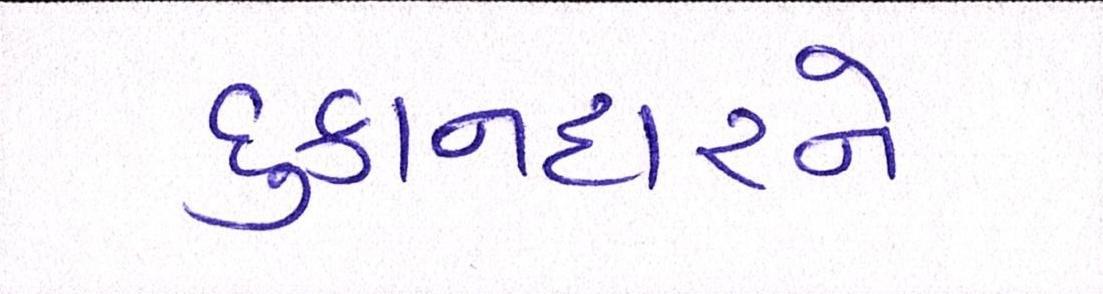 દુકાનદારને